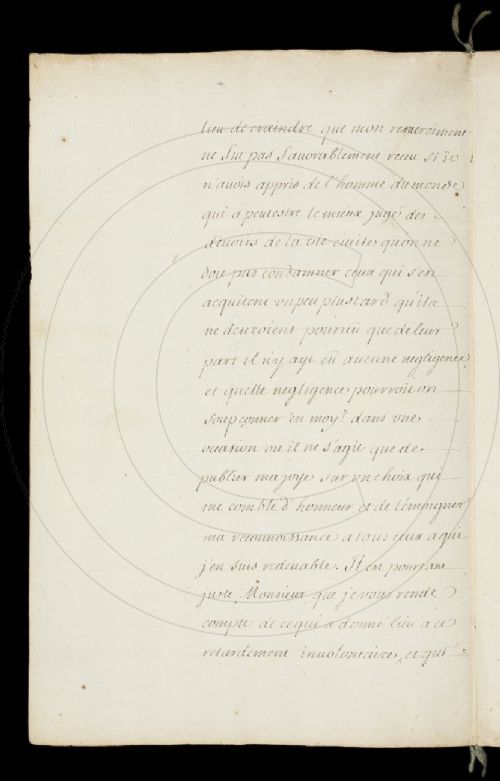 lieu de craindre que mon remerciment
ne fut pas favorablement receu si je
n'avois appris de l'homme du monde
qui a peutestre le mieux jugé des
devoirs de la vie civile, qu'on ne
doit pas condamner ceux qui s'en
acquitent un peu plus tard qu'ils
ne devroient pourvû que de leur
part il n'y ayt eû aucune negligence,
et quelle negligence pourroit on
soupçonner en moy? dans une
occasion ou il ne s'agit que de
publier ma joye sur un choix qui
me comble d'honneur et de témoigner
ma reconnoissance a tous ceux a qui
j'en suis redevable. Il en pourtant
juste, Monsieur, que je vous rende
compte de ce qui a donné lieu a ce
retardement involontaire, et qui